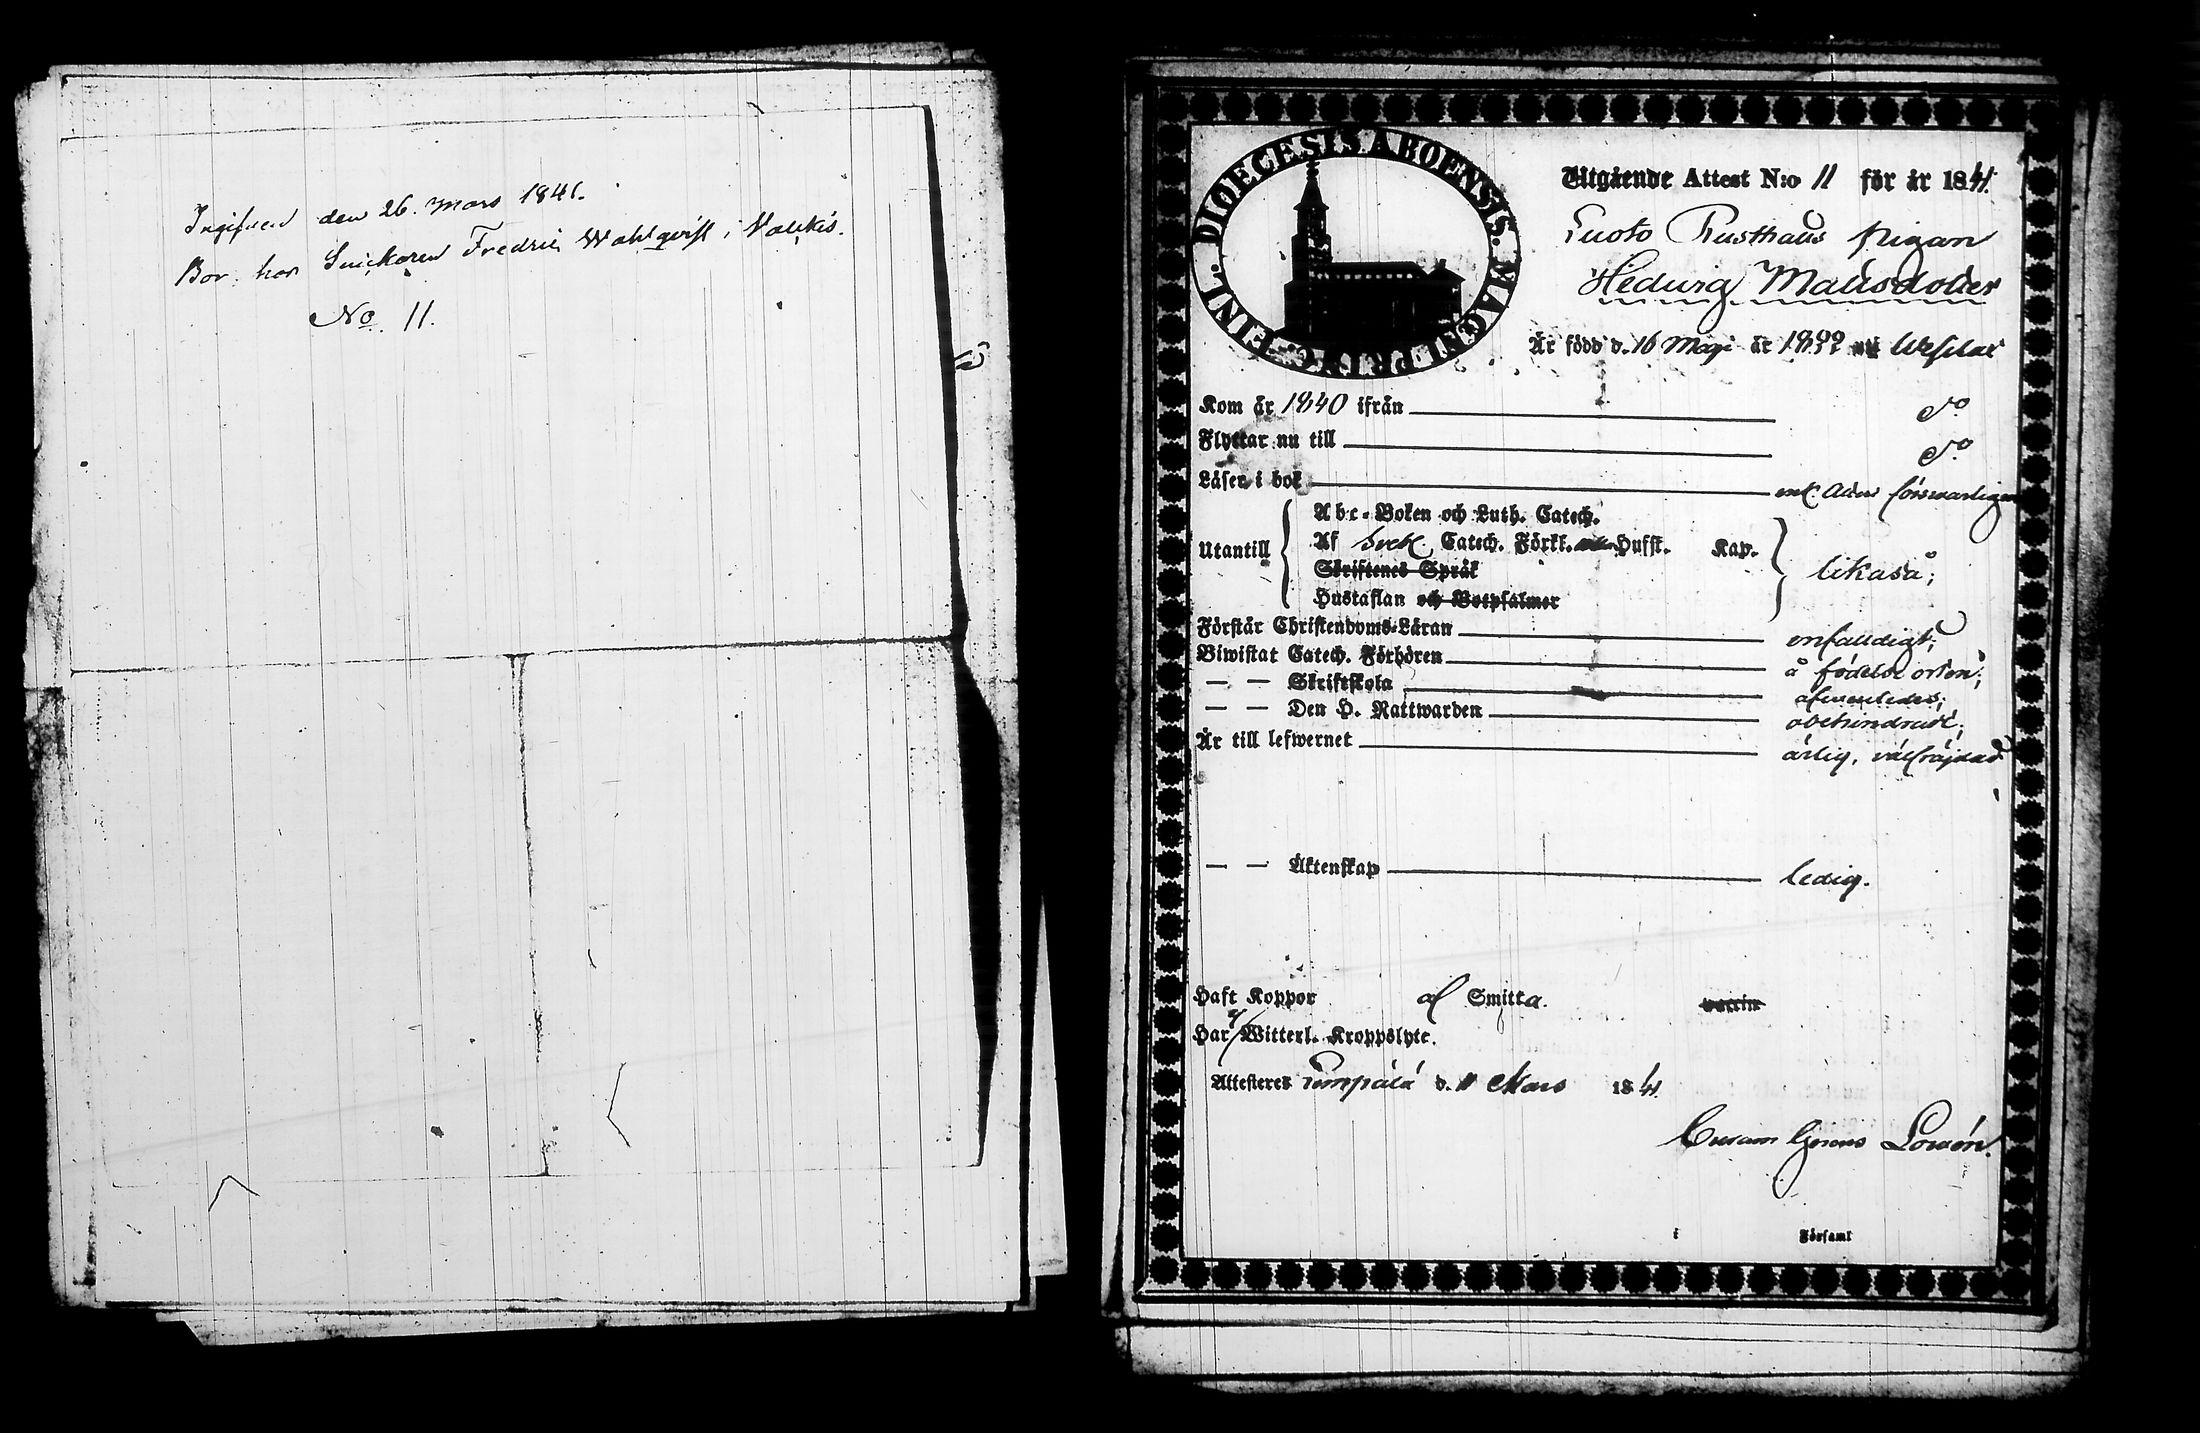 Ingifven den 26. Mars 1841.
Bor hos Snickaren Fredric Wahlqvist i Nautkis.
No. 11.
DIOECESIS ABOENSIS. MAGNI PRINC. FINL.
Utgående Attest N:o 11 för år 1841.
Luoto Rusthålls pigan
Hedwig Matisdotter
Är född d. 16 Maji år 1822 i Wesilax
Kom år 1840 ifrån d:o
Flyttar nu till d:o
Läser i bok enl. Attest försvarligen
Abc-Boken och Luth. Catech.
Utantill Af Sveb. Catech. Förkl. Hufst. Kap. likaså;
Skriftenes Språk
Hustaflan och Botpsalmer
Förstår Christendoms-Läran enfalldigt;
Biwistat Catech. Förhören å födelse orten;
— — Skriftskola äfvenledes;
— — Den H. Nattwarden obehindrad;
Är till lefwernet ärlig, välfräjdad
— — Äktenskap ledig.
Haft Koppor af Smitta. vaccin
Har ej Witterl. Kroppslyte.
Attesteras Lempälä d. 11 Mars 1841.
Curam Gerens Lorén.
i Församl